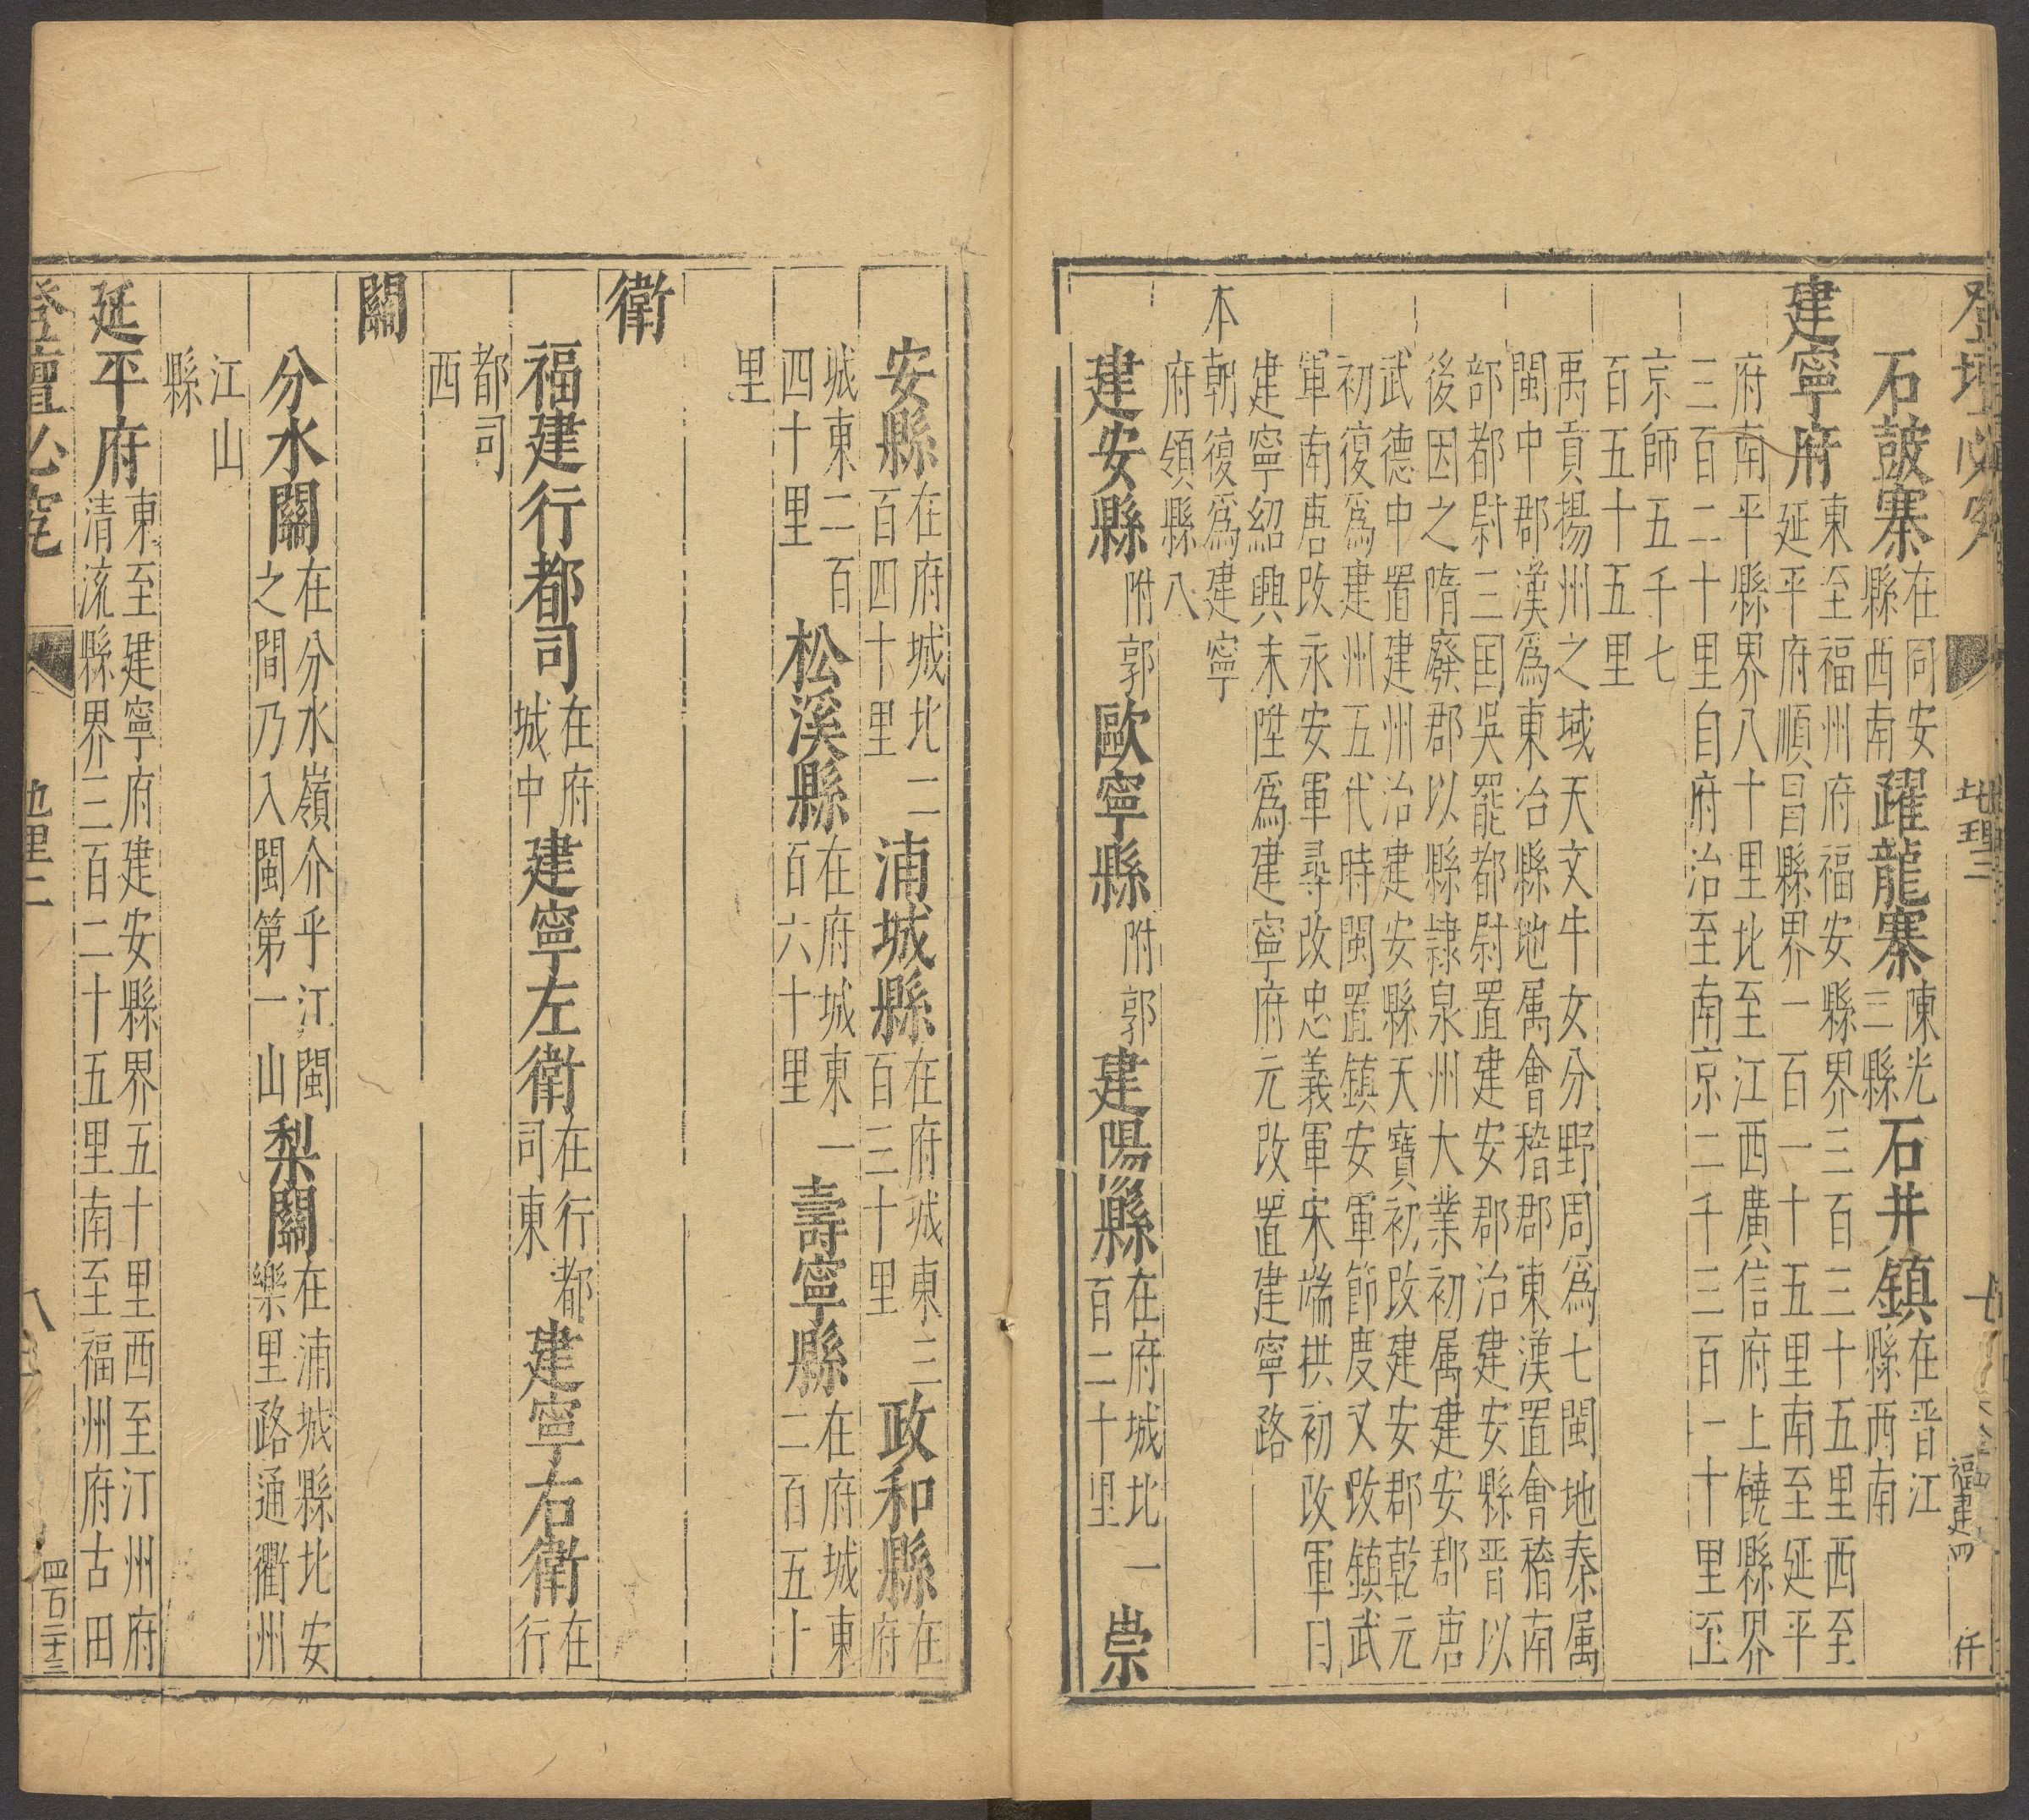 登壇必究
地理二
七
福建四
仟
石鼓寨在同安縣西南躍龍寨陳光三縣石井鎮在晋江縣西南
建寧府東至福州府福安縣界三百三十五里西至延平府順昌縣界一百一十五里南至延平
府南平縣界八十里北至江西廣信府上饒縣界
三百二十里自府治至南京二千三百一十里至
京師五千七
百五十五里
禹貢揚州之域天文牛女分野周爲七閩地秦属
閩中郡漢爲東冶縣地属會稽郡東漢置會稽南
部都尉三国吳罷都尉置建安郡治建安縣晋以
後因之隋廢郡以縣隷泉州大業初属建安郡唐
武德中置建州治建安縣天寶初改建安郡乾元
初復爲建州五代時閩置鎮安軍節度又改鎮武
軍南唐改永安軍尋改忠義軍宋端拱初改軍曰
建寧紹興末陞爲建寧府元改置建寧路
本朝復爲建寧
府領縣八
建安縣附郭歐寧縣附郭建陽縣在府城北一百二十里崇
安縣在府城北二百四十里浦城縣在府城東三百三十里政和縣在府
城東二百四十里松溪縣在府城東一百六十里壽寧縣在府城東二百五十
里
衛
福建行都司在府城中建寧左衛在行都司東建寧右衛在行
都司西
關
分水關在分水嶺介乎江閩之間乃入閩第一山梨關在浦城縣北安樂里路通衢州
江山縣
延平府東至建寧府建安縣界五十里西至汀州府清流縣界三百二十五里南至福州府古田
登壇必究
地理二
八
四百二十三